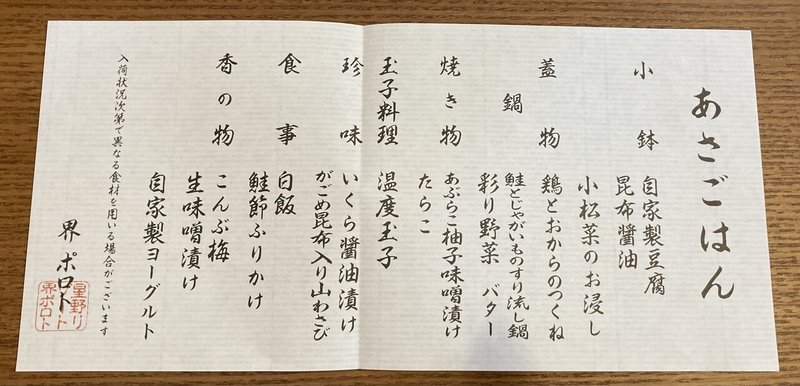 あさごはん
小鉢 自家製豆腐
昆布醤油
小松菜のお浸し
蓋物 鶏とおからのつくね
鍋 鮭とじゃがいものすり流し鍋
彩り野菜 バター
焼き物 あぶらこ柚子味噌漬け
たらこ
玉子料理 温度玉子
珍味 いくら醤油漬け
がごめ昆布入り山わさび
食事 白飯
鮭節ふりかけ
香の物 こんぶ梅
生味噌漬け
自家製ヨーグルト
入荷状況次第で異なる食材を用いる場合がございます
界 ポロト
星野リゾート
界ポロト